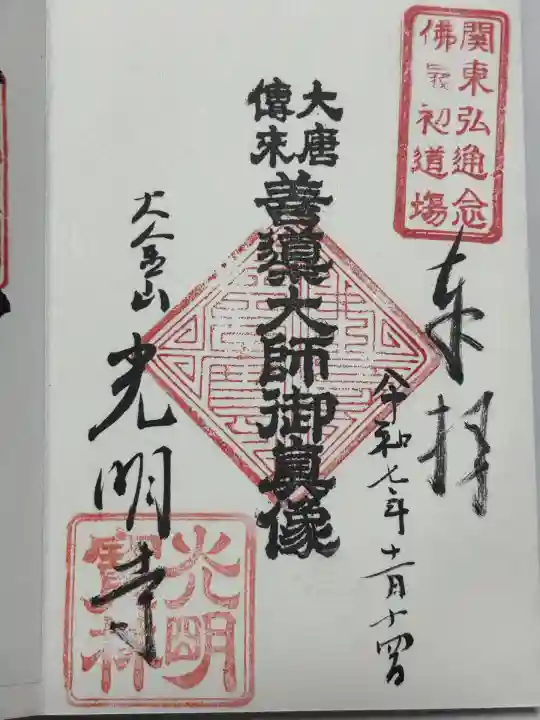 関東弘通念
佛最初道場
奉拝
令和七年十二月十四日
大唐
傳来
善導大師御真像
天照山
光明寺
光明
寳林